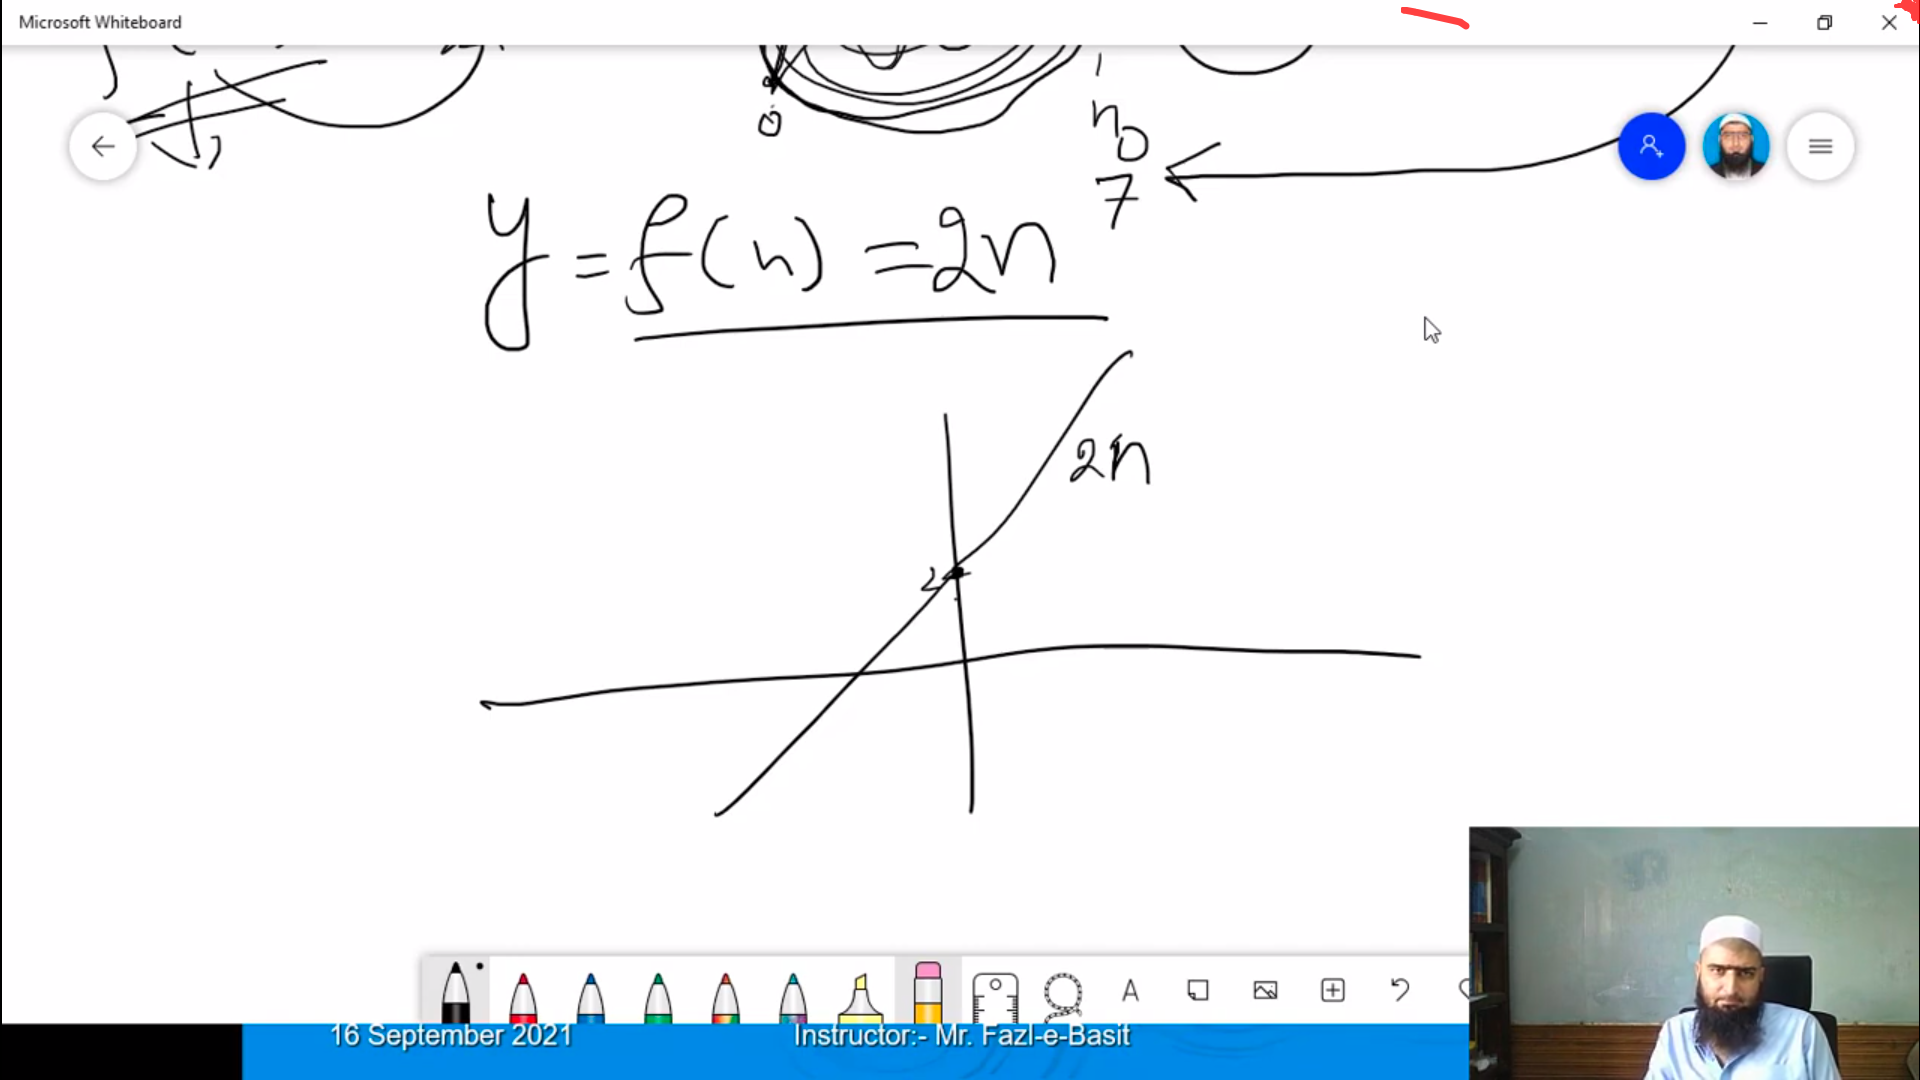 Microsoft Whiteboard
0
n
0
7
y = f(n) = 2n
2n
2
A
16 September 2021
Instructor:- Mr. Fazl-e-Basit